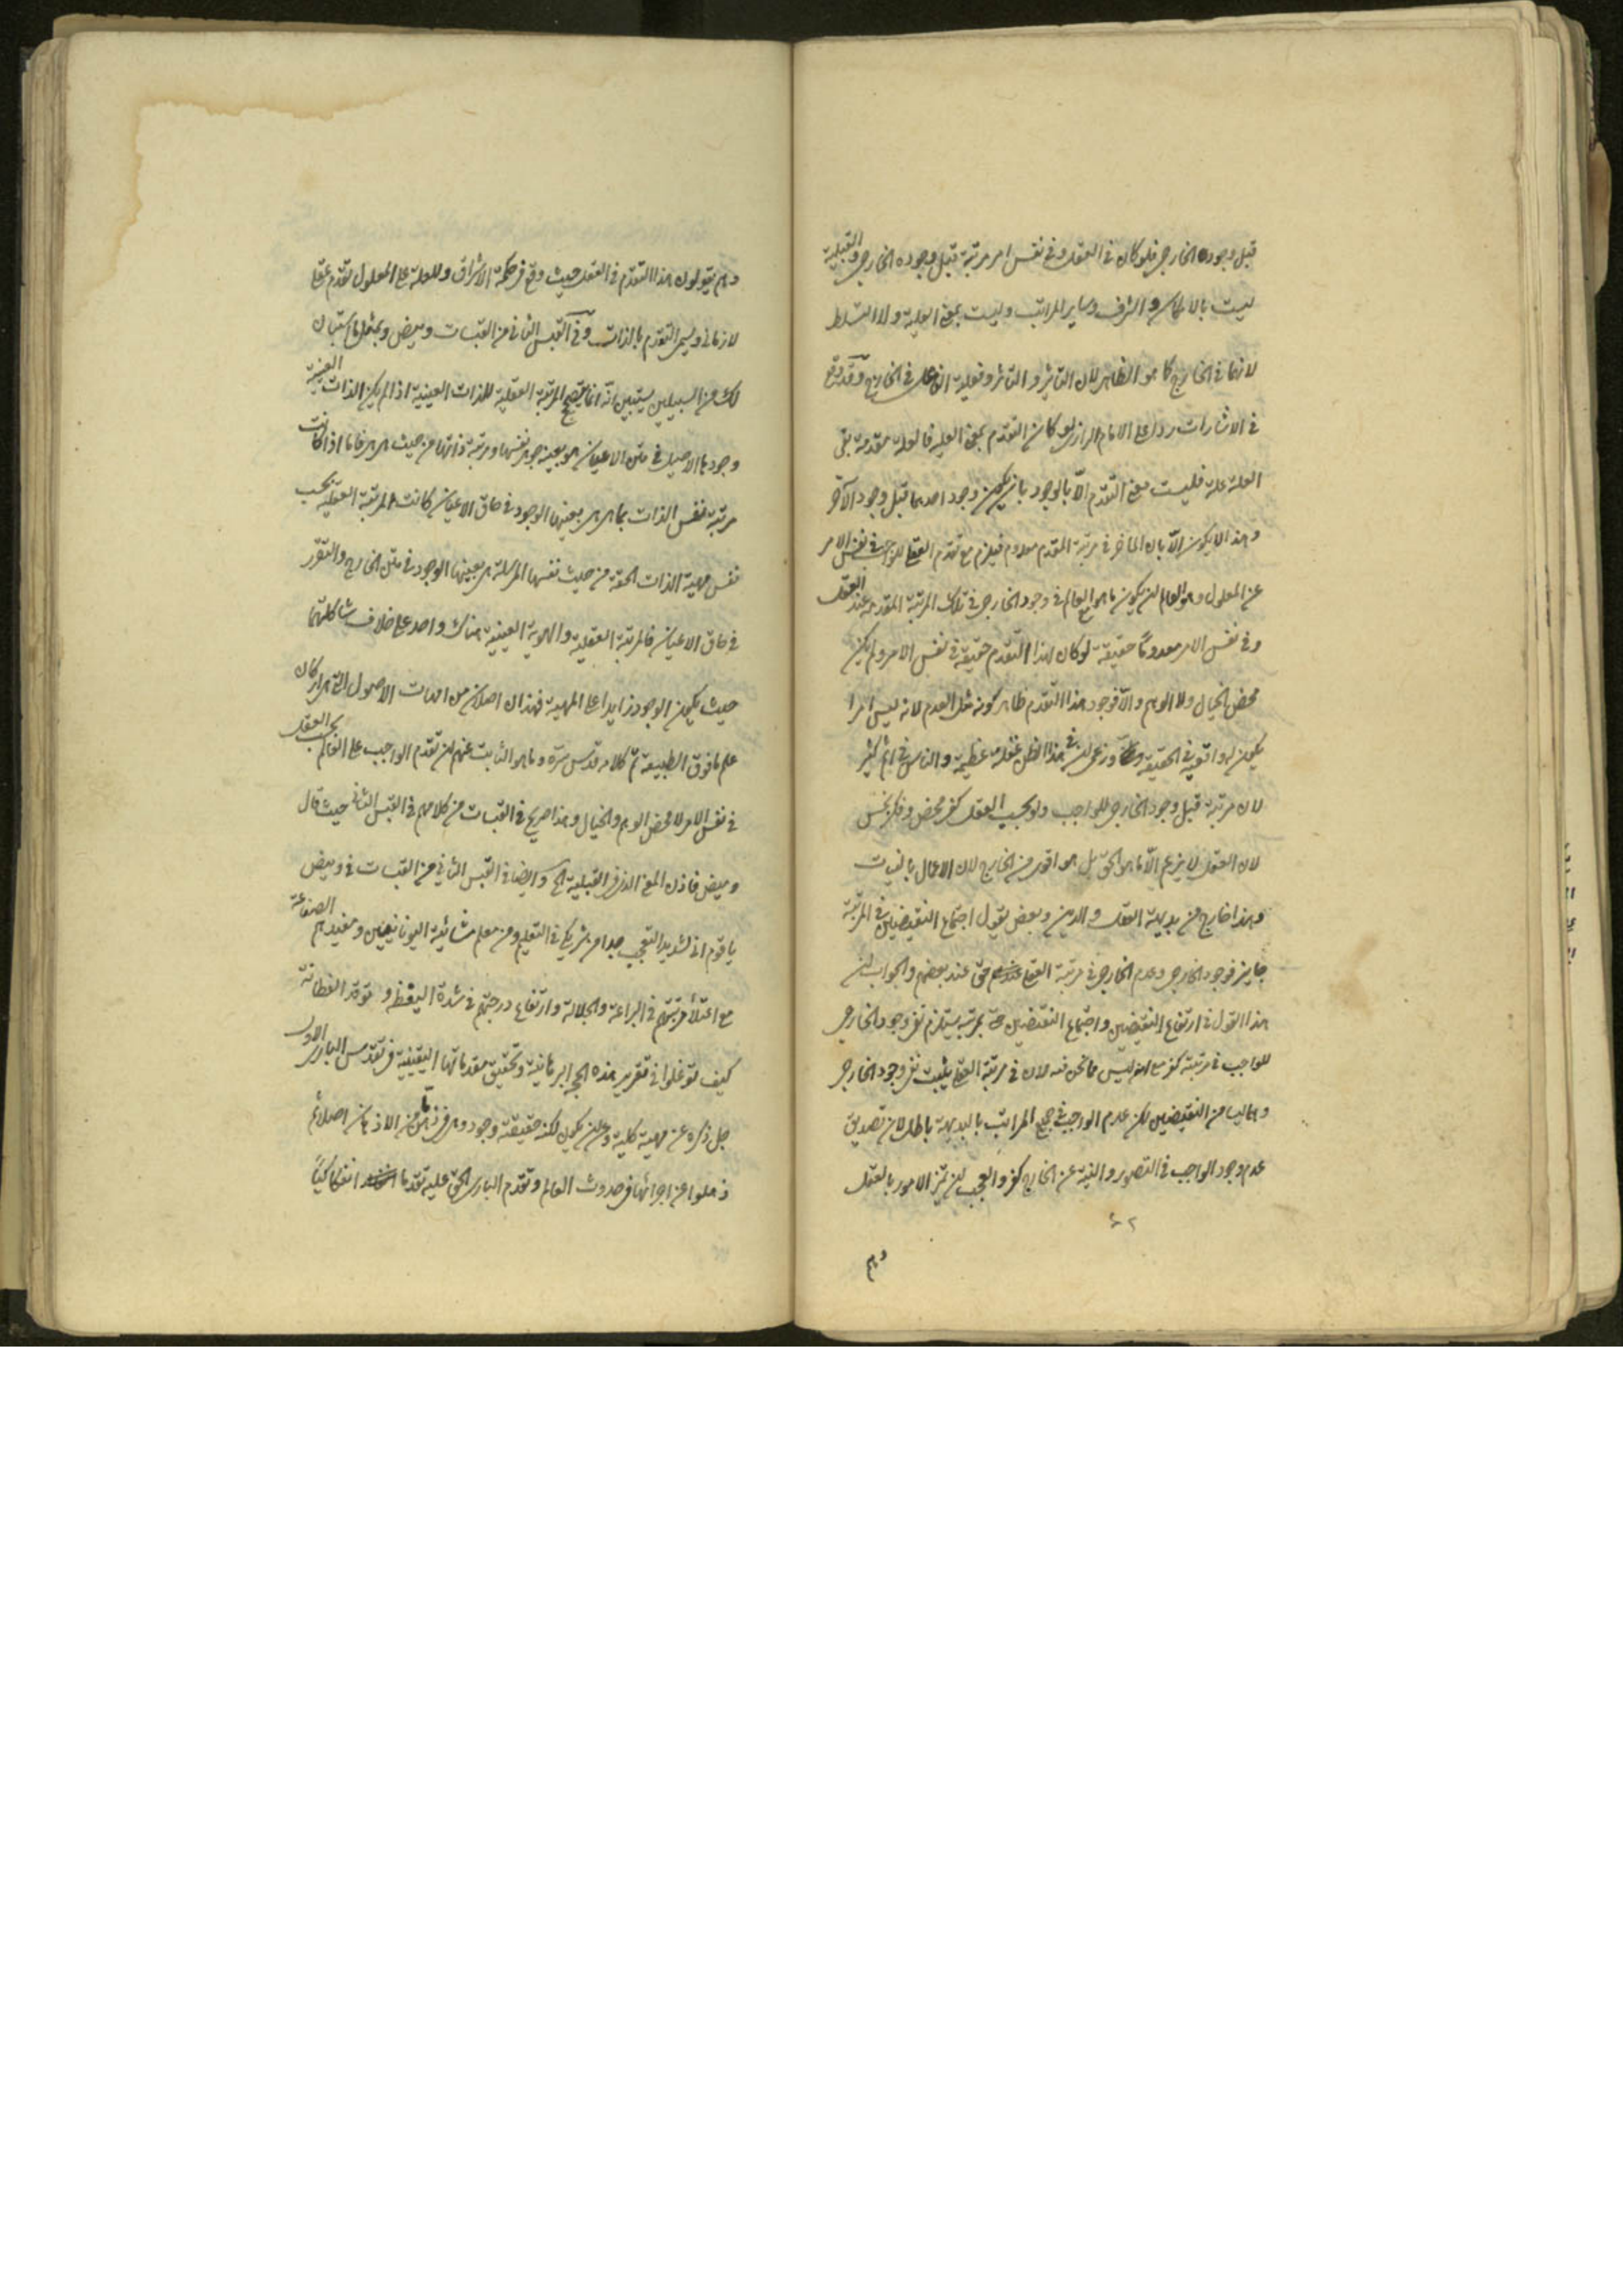 قبل وجوده الخارجى فلو كان فى العقل وفى نفس امر مرتبة قبل وجوده الخارجى والقبلية
ليست بالامكان والشرف وساير المراتب وليست بمعنى العلية ولا الشرط
لانها فى الخارج كما هو الظاهر لان التأثير والتاثر وفعلية الفاعل فى الخارج وقد وقع
فى الاشارات ردا على الامام الرازى لو كان التقدم بمعنى العلية فالعلة متقدمة بقى
العلة علة فليست معنى التقدم الا بالوجود بان يكون وجود احدهما قبل وجود الآخر
وهذا لا يكون الا بان المأخر فى مرتبة المقدم معدوم فيلزم مع تقدم العقلى للواجب فى نفس الامر
عن المعلول وهو العالم ان يكون ما هو العالم فى وجود الخارجى فى تلك المرتبة المقدمة عند العقل
وفى نفس الامر معدوما حقيقة لو كان لهذا التقدم حقيقة فى نفس الامر ولم يكن
محض الخيال ولا الوهم والا فوجود هذا التقدم ظاهر كونه مثل العدم لانه ليس امرا
يكون له واقعية فى الحقيقة وزعمى ان فى هذا الظن غفلة عظيمة والناس فى اثم كثير
لان مرتبة قبل وجود الخارجى للواجب ولو بحسب العقل كفر محض وفكر نجس
لان العقل لا يزعم الا ما هو الحق بل هو اقوى من الخارج لان الاعمال بالنيات
وهذا خارج من بديهة العقل والدين وبعض يقول اجتماع النقيضين فى المرتبة
جايز فوجود الخارجى وعدم الخارجى فى مرتبة العقلى حق عند بعضهم والجواب ان
هذا القول فى ارتفاع النقيضين واجتماع النقيضين فى مرتبة يستلزم نفى وجود الخارجى
للواجب فى مرتبة كفر مع انه ليس مما نحن فيه لان فى مرتبة العقلى يثبت نفى وجود الخارجى
وهما ليسا من النقيضين لكن عدم الواجب فى جميع المراتب بالبديهة باطل لان تصديق
عدم وجود الواجب فى التصور والنية عن الخارج كفر والعجب ان تميز الامور بالعقل
وهم
وهم يقولون هذا التقدم فى العقل حيث وقع فى حكمة الاشراق وللعلة على المعلول تقدم عقلى
لا زمانى ويسمى التقدم بالذات وفى القبس الثانى من القبسات وميض وبمثل ما استبان
لك من السبيلين يستبين انه انما يصح المرتبة العقلية للذات العينية اذا لم يكن الذات العينية
وجودها الاصيل فى متن الاعيان هو بعينه جوهر نفسها ومرتبة ذاتها من حيث هى هى فاما اذا كانت
مرتبة نفس الذات بما هى هى بعينها الوجود فى حاق الاعيان كانت المرتبة العقلية بحسب
نفس مهية الذات الحقة من حيث نفسها المرسلة هى بعينها الوجود فى متن الخارج والتقرر
فى حاق الاعيان فالمرتبة العقلية والهوية العينية هناك واحد على خلاف شاكلتهما
حيث يكون الوجود زايدا على المهية فهذان اصلان من امهات الاصول التى هى اركان
علم ما فوق الطبيعة تم كلامه قدس سره وما هو الثابت عنهم من تقدم الواجب على العالم بحسب العقل
فى نفس الامر لا محض الوهم والخيال وهذا صريح فى القبسات من كلامهم فى القبس الثانى حيث قال
وميض فاذن المعنى الذى فى القبلية الخ وايضا فى القبس الثانى من القبسات فى وميض
يا قوم انى لشديد التعجب جدا من شريكى فى التعليم ومن معلم مشائية اليونانيين ومفيدهم الصناعة
مع اعتلاء مرتبتهم فى البراعة والجلالة وارتفاع درجتهم فى شدة اليقظ وتوقد الفطانة
كيف توغلوا فى تقرير هذه الحجج البرهانية وتحقيق مقدماتها اليقينية فى تقدس البارى الاول
جل ذكره عن مهية كلية وعن ان يكون لكنه حقيقته وجود وهى فى ذهن ما من الاذهان اصلا ثم
ذهلوا عن اجرائها فى حدوث العالم وتقدم البارى الحق عليه تقدما انفكاكيا